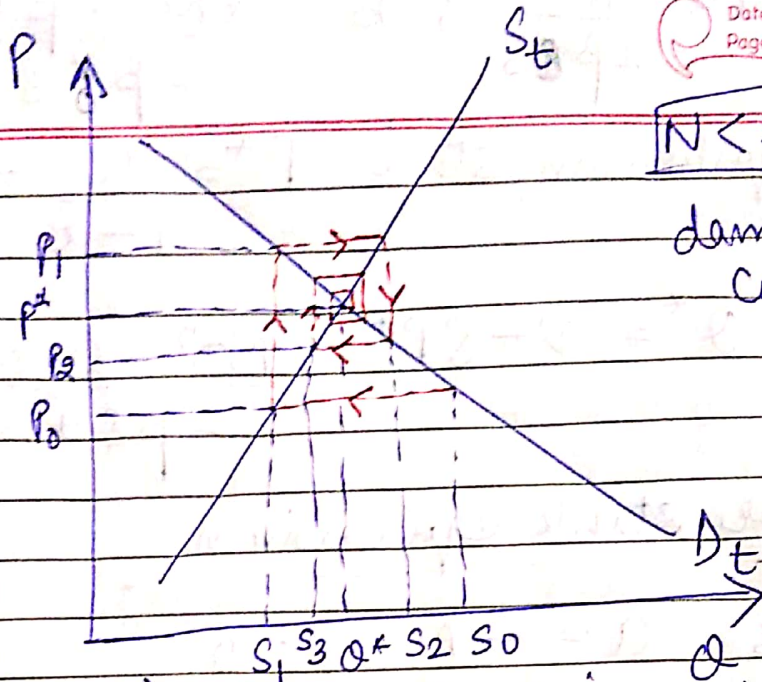 P
S_t
Dat
Pag
N <
P_1
dam
C
P*
P_2
P_0
D_t
S_1 S_3 Q* S_2 S_0
Q